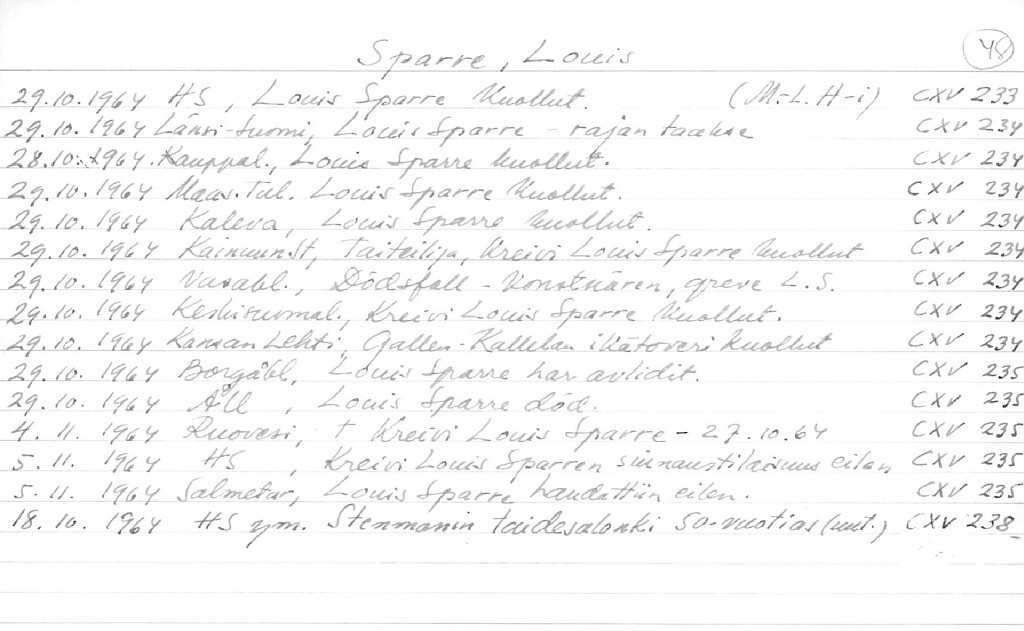 Sparre, Louis 48
29.10.1964 HS, Louis Sparre kuollut. (M.-L. H-i) CXV 233
29.10.1964 Länsi-Suomi, Louis Sparre - rajan taakse CXV 234
28.10.1964 Kauppal., Louis Sparre kuollut. CXV 234
29.10.1964 Maas.Tul. Louis Sparre kuollut. CXV 234
29.10.1964 Kaleva, Louis Sparre kuollut. CXV 234
29.10.1964 Kainuun St, Taiteilija, kreivi Louis Sparre kuollut CXV 234
29.10.1964 Vasabl., Dödsfall - Konstnären, greve L.S. CXV 234
29.10.1964 Keskisuomal., Kreivi Louis Sparre kuollut. CXV 234
29.10.1964 Kansan Lehti, Gallen-Kallelan ikätoveri kuollut CXV 234
29.10.1964 Borgåbl, Louis Sparre har avlidit. CXV 235
29.10.1964 ÅU, Louis Sparre död. CXV 235
4.11.1964 Ruovesi, † Kreivi Louis Sparre - 27.10.64 CXV 235
5.11.1964 HS, Kreivi Louis Sparren siunaustilaisuus eilen CXV 235
5.11.1964 Salmetar, Louis Sparre haudattiin eilen. CXV 235
18.10.1964 HS ym. Stenmanin taidesalonki 50-vuotias (uut.) CXV 238